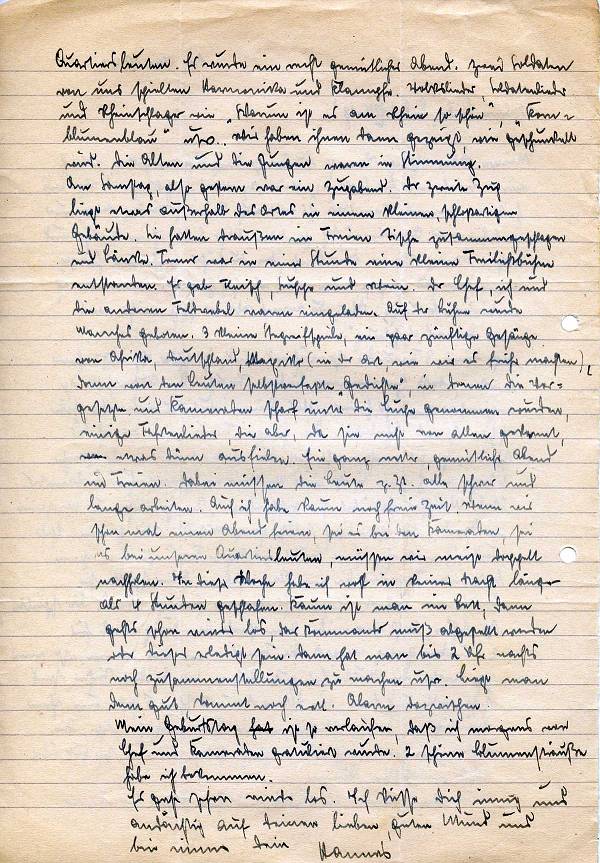 Quartiersleuten. Es wurde ein recht gemütlicher Abend. Zwei Soldaten
von uns spielten Harmonika und Klampfe. Volkslieder, Soldatenlieder
und Rheinschlager wie „Warum ist es am Rhein so schön", „Korn-
blumenblau" usw.. Wir haben ihnen dann gezeigt, wie geschunkelt
wird. Die Alten und die Jungen waren in Stimmung.
Am Samstag, also gestern war ein Zugabend. Der zweite Zug
liegt etwas außerhalb des Ortes in einem kleinen, schloßartigen
Gebäude. Sie hatten draußen im Freien Tische zusammengeschlagen
und Bänke. Ferner war in einer Stunde eine kleine Freilichtbühne
entstanden. Es gab Fleisch, und Wein. Der Chef, ich und
die anderen Feldwebel waren eingeladen. Auf der Bühne wurde
Manches geboten. 3 kleine Stegreifspiele, ein paar zünftige Gesänge
von Afrika, Deutschland, Mexiko (in der Art, wie wir es früher machten),
dann von den Leuten selbstverfaßte „Gedichte", in denen die Vor-
gesetzten und Kameraden scharf unter die Lupe genommen wurden,
einige Fahrtenlieder, die aber, da sie nicht von allen gekannt,
etwas dünn ausfielen. Ein ganz netter, gemütlicher Abend
im Freien. Dabei müssen die Leute z. Zt. alle schwer und
lange arbeiten. Auch ich habe kaum noch freie Zeit. Wenn wir
schon mal einen Abend feiern, sei es bei den Kameraden, sei
es bei unseren Quartiersleuten, müssen wir meist doppelt
nachholen. In dieser Woche habe ich wohl in keiner Nacht länger
als 4 Stunden geschlafen. Kaum ist man im Bett, dann
gehts schon wieder los, das Kommando muß abgestellt werden
oder dieses erledigt sein. Dann hat man bis 2 Uhr nachts
noch Zusammenstellungen zu machen usw. Liegt man
dann gut, kommt noch evtl. Alarm dazwischen.
Mein Geburtstag ist so verlaufen, daß ich morgens vom
Chef und Kameraden gratuliert wurde. 2 schöne Blumensträuße
habe ich bekommen.
Es geht schon wieder los. Ich küsse Dich innig und
andächtig auf Deinen lieben, guten Mund und
bin immer Dein Hannes